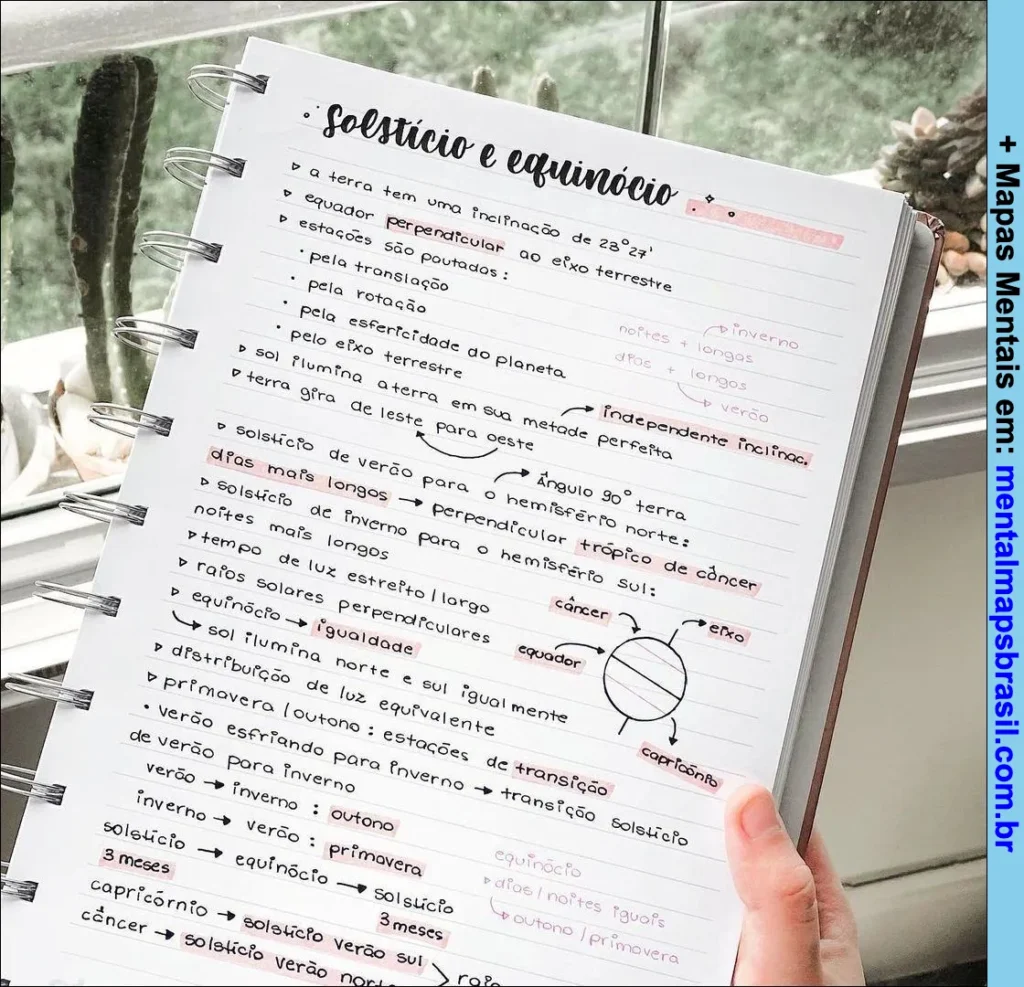 solstício e equinócio
a terra tem uma inclinação de 23°27'
equador perpendicular ao eixo terrestre
estações são pautadas:
• pela translação
• pela rotação
• pela esfericidade do planeta
• pelo eixo terrestre
noites + longas → inverno
dias + longos
→ verão
sol ilumina a terra em sua metade perfeita → independente inclinac.
terra gira de leste para oeste
solstício de verão para o hemisfério norte:
→ Ângulo 90° terra
dias mais longos → perpendicular trópico de câncer
solstício de inverno para o hemisfério sul:
noites mais longos
tempo de luz estreito/largo
raios solares perpendiculares
equinócio → igualdade
→ sol ilumina norte e sul igualmente
distribuição de luz equivalente
câncer
eixo
equador
capricónio
primavera/outono: estações de transição
• verão esfriando para inverno → transição solstício
de verão para inverno
verão → inverno : outono
inverno → verão : primavera
solstício → equinócio → solstício
3 meses
3 meses
equinócio
dias/noites iguais
→ outono/primavera
capricórnio → solstício verão sul
câncer → solstício verão norte
+ Mapas Mentais em: mentalmapsbrasil.com.br